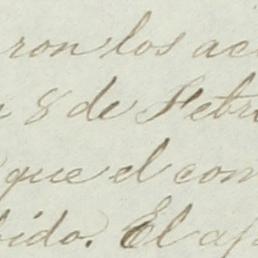 ron los ac
8 de Febr
que el com
bido. El ap